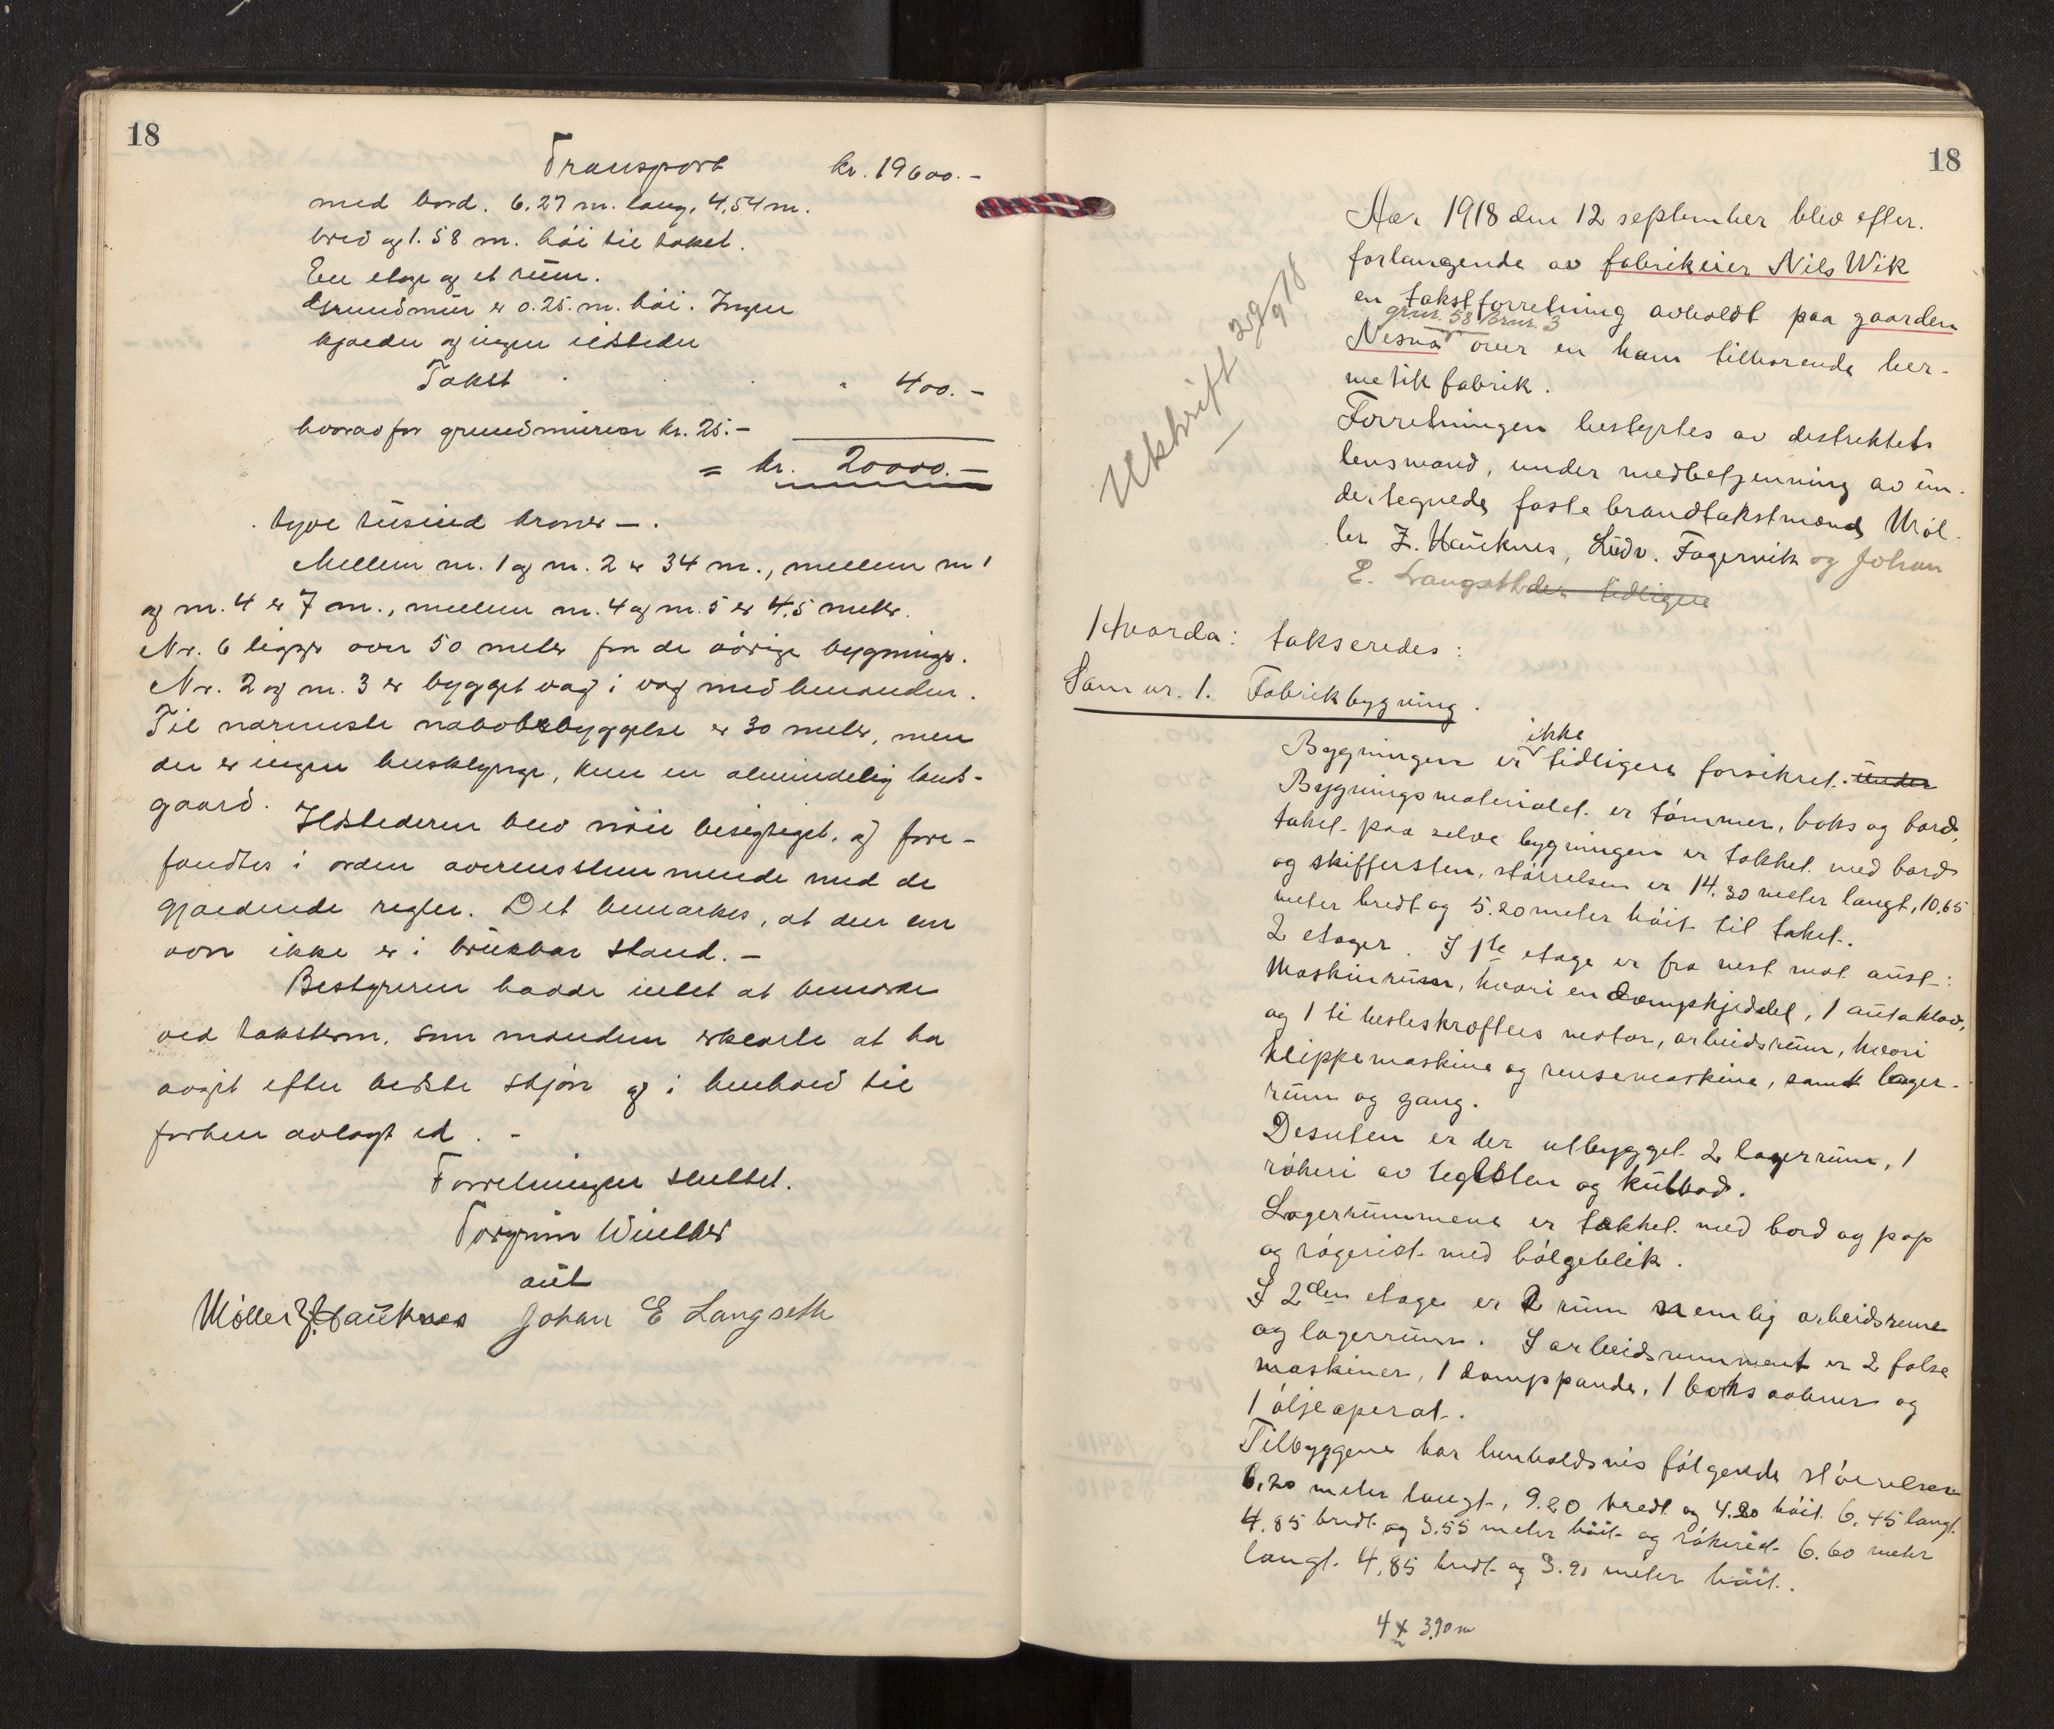 18
Transport kr. 19600.-
med bord. 6,27 m. lang, 4,54 m.
bred og 1.58 m. høi til taket.
En etage og et rum.
Grundmur er 0.25. m. høi. Ingen
kjælder og ingen ildsteder
Takst " 400.-
hvorav for grundmuren kr. 25.-
= kr. 20000.-
tyve tusind kroner-.
Mellem nr. 1 og nr. 2 er 34 m., mellem nr 1
og nr. 4 er 7 m., mellem nr. 4 og nr. 5 er 4,5 meter.
Nr. 6 ligger over 50 meter fra de øvrige bygninger.
Nr. 2 og nr. 3 er bygget væg i væg med hverandre.
Til nærmeste nabobebyggelse er 30 meter, men
der er ingen husklynge, kun en almindelig land-
gaard.
Ildstederne blev nøie besigtiget, og fore-
fandtes i orden overensstemmende med de
gjældende regler. Det bemærkes, at den ene
ovn ikke er i brukbar stand.-
Bestyreren hadde intet at bemerke
ved taksten, som mændene erklærte at ha
avgit efter bedste skjøn og i henhold til
forhen avlagt ed.-
Forretningen sluttet.
Torgrim Winther
aut
Møller Z. Hauknes Johan E Langseth
18
Utskrift 29/9 18
Aar 1918 den 12 september blev efter
forlangende av fabrikeier Nils Wik
en takstforretning avholdt paa gaarden
grnr. 58 brnr. 3
Nesna over en ham tilhørende her-
metikfabrik.
Forretningen bestyrtes av distriktets
lensmand, under medbetjenning av un-
dertegnede faste brandtakstmænd Møl-
ler Z. Hauknes, Ludv. Fagervik og Johan
E. Langseth der tidligere
Hvorda: takseredes:
Som nr. 1. Fabrikbygning.
ikke
Bygningen er tidligere forsikret. under
Bygningsmaterialet er tømmer, boks og bord,
taket paa selve bygningen er tækket med bord
og skiffersten, størrelsen er 14.30 meter langt, 10,65
meter bredt og 5.20 meter høit til taket.
2 etager. I 1ste etage er fra vest mot aust:
Maskinrum, hvori en dampkjeddel, 1 autoklav,
og 1 ti hesteskrefters motor, arbeidsrum, hvori
klippemaskine og rensemaskine, samt lager-
rum og gang.
Desuten er der utbygget 2 lagerrum, 1
røkeri av teglsten og kulbod.
Lagerrummene er tækket med bord og pap
og røgeriet med bølgeblik.
I 2den etage er 2 rum nemlig arbeidsrum
og lagerrum. I arbeidsrummet er 2 false
maskiner, 1 damppande, 1 boks aabner og
1 oljeaperat.
Tilbyggene har henholdsvis følgende størrelser
6,20 meter langt, 9.20 bredt og 4.20 høit 6,45 langt
4.85 bredt og 3.55 meter høit og røkeriet 6.60 meter
langt 4,85 bredt og 3.90 meter høit.
4 x 3.90 m